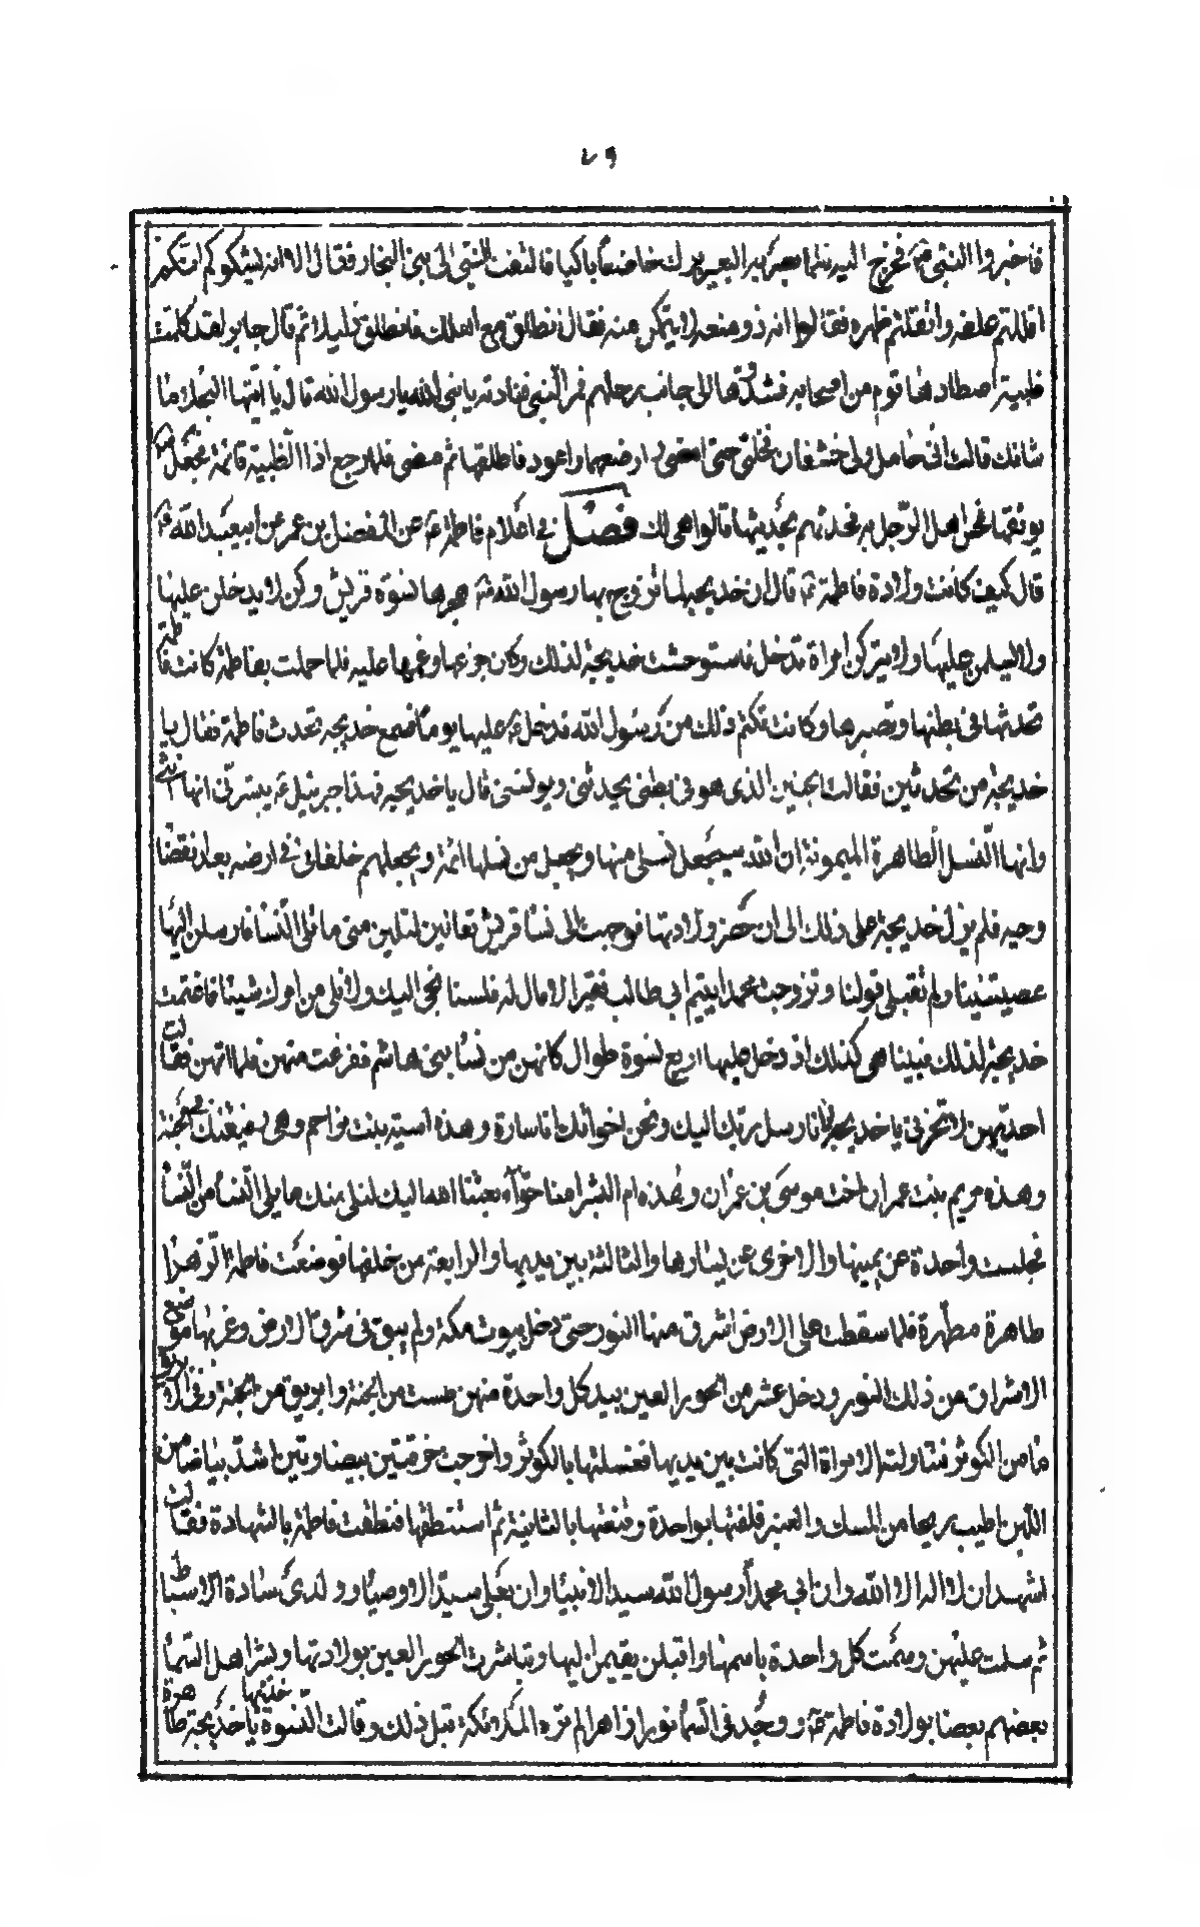 ٧٩
فاخبروا النبى صم فخرج اليه فلما بصر به البعير برك خاضعا باكيا فالتفت النبى الى بنى النجار فقال الا انه يشكوكم انكم
اقللتم علفه واثقلتم ظهره فقالوا انه ذو منعه لا يتمكن منه فقال انطلق مع اهلك فانطلق ذليلا ثم قال جابر لقد كلمت
ظبية اصطادها قوم من اصحابه فشدوها الى جانب رحلهم فمر النبى فنادته يا نبى الله يا رسول الله قال يا ايتها النجلاء ما
شانك قالت انى حامل ولى خشفان فخلنى حتى امضى و ارضعهما واعود فاطلقها ثم مضى فلما رجع اذا الظبية قائمة فجعل صم
يوثقها فحس اهل الرجل به فحدثهم بحديثها قالوا هى لك فصل فى اعلام فاطمة ع عن المفضل بن عمر عن ابيعبد الله ع
قال كيف كانت ولادة فاطمة ع قال ان خديجة لما تزوج بها رسول الله صم هجرها نسوة قريش وكن لا يدخلن عليها
ولا يسلمن عليها ولا يتركن امراة تدخل فاستوحشت خديجة لذلك وكان جزعها وغمها عليه فلما حملت بفاطمة كانت فاطمة
تحدثها فى بطنها وتصبرها وكانت تكتم ذلك من رسول الله فدخل ع عليها يوما فسمع خديجة تحدث فاطمة فقال يا
خديجة من تحدثين فقالت الجنين الذى هو فى بطنى يحدثنى ويونسنى قال يا خديجة فهذا جبرئيل ع يبشرنى انها انثى
وانها النسل الطاهرة الميمونة ان الله سيجعل نسلى منها ويجعل من نسلها ائمة ويجعلهم خلفائى فى ارضه بعد انقضا
وحيه فلم يزل خديجة على ذلك الى ان حضر ولادتها فوجهت الى نسا قريش تعالين لتلين منى ما تلى النسا فارسلن اليها
عصيتنينا ولم تقبلى قولنا وتزوجت محمدا يتيم ابى طالب فقيرا لا مال له فلسنا نجى اليك ولا نلى من امرك شيئا فاغتمت
خديجة لذلك فبينا هى كذلك اذ دخل عليها اربع نسوة طوال كانهن من نسا بنى هاشم ففزعت منهن فلما راتهن فقالت
احديهن لا تحزنى يا خديجة انا رسل ربك اليك ونحن اخواتك انا سارة وهذه اسية بنت مزاحم وهى رفيقتك فى الجنة
وهذه مريم بنت عمران اخت موسى بن عمران وهذه ام البشر امنا حواء بعثنا الله اليك لنلى منك ما يلى النسا من النسا
فجلست واحدة عن يمينها والاخرى عن يسارها والثالثة بين يديها والرابعة من خلفها فوضعت فاطمة الزهرا
طاهرة مطهرة فلما سقطت على الارض اشرق منها النور حتى دخل بيوت مكة ولم يبق فى شرق الارض وغربها موضع
الا اشرق من ذلك النور ودخل عشر من الحور العين بيد كل واحدة منهن طست من الجنة وابريق من الجنة وفى الابريق
ما من الكوثر فتناولتها الامراة التى كانت بين يديها فغسلتها بالكوثر واخرجت خرقتين بيضاوتين اشد بياضا من
اللبن اطيب ريحا من المسك والعنبر فلفتها بواحدة وقنعتها بالثانية ثم استنطقها فنطقت فاطمة بالشهادة فقالت
اشهد ان لا اله الا الله وان ابى محمدا رسول الله سيد الانبيا وان بعلى سيد الاوصيا وولدى سادة الاسباط
ثم سلمت عليهن وسمت كل واحدة باسمها واقبلن يقيمن اليها وتباشرت الحور العين بولادتها وبشر اهل السما
بعضهم بعضا بولادة فاطمة ع ووجد فى السما نورا زاهرا لم تره الملائكة قبل ذلك وقالت النسوة يا خديجة خذيها طاهرة